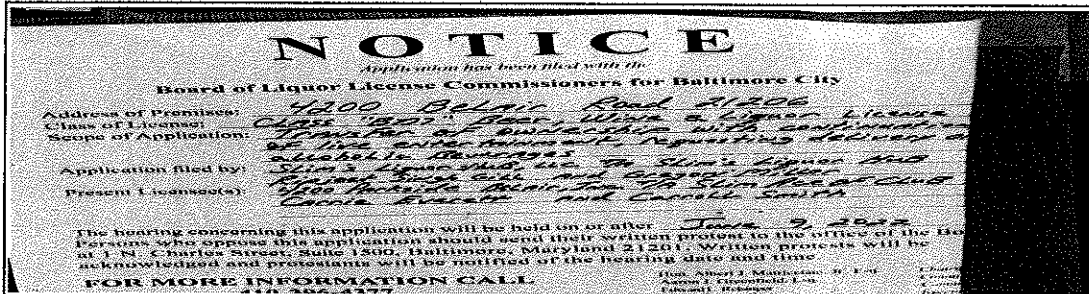 NOTICE
Application has been filed with the
Board of Liquor License Commissioners for Baltimore City
Address of Premises: 4200 Belair Road 21206
Class of License: Class "BD7" Beer, Wine & Liquor License
Scope of Application: Transfer of ownership with continuation
of live entertainment, requesting delivery of
alcoholic Beverages
Application filed by: Slim's Liquor Hub LLC T/A Slim's Liquor Hub
Singh Gill and Gregory
Present Licensee(s): Parkside Belair, Inc. T/A Slim Club
Carrie Everett and Carroll Smith
The hearing concerning this application will be held on or after June 9, 2022
Persons who oppose this application should send their written protest to the office of the
at 1 N. Charles Street, Suite 1500, Baltimore, Maryland 21201. Written protests will be
acknowledged and protestants will be notified of the hearing date and time
FOR MORE INFORMATION CALL
Hon. Albert J. Matricciani, Jr.
Aaron J. Greenfield,
410-396-4377
Edward